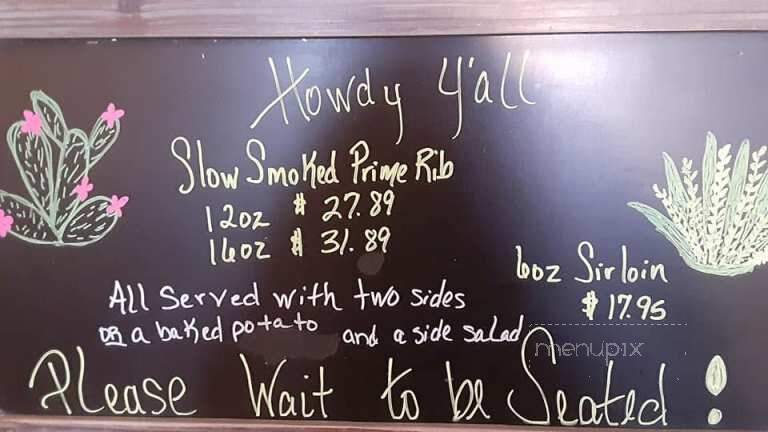 Howdy Y'all
Slow Smoked Prime Rib
12oz $ 27.89
16oz $ 31.89
6oz Sirloin
$ 17.95
All Served with two sides
OR a baked potato and a side salad
menupix
Please Wait to be Seated!